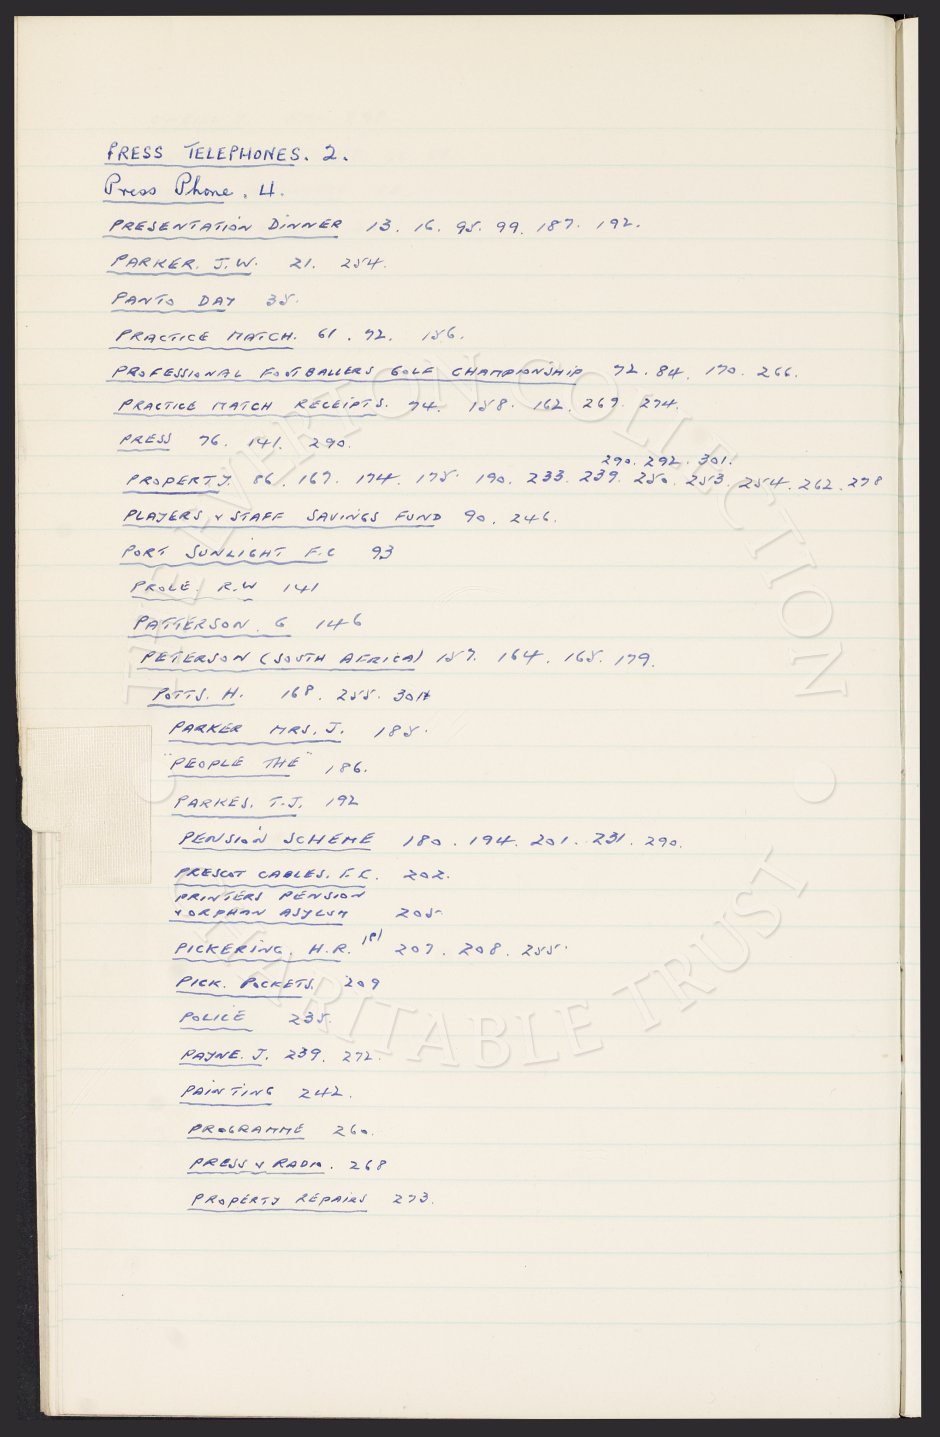 PRESS TELEPHONES. 2.
Press Phone. 4.
PRESENTATION DINNER 13. 16. 95. 99. 187. 192.
PARKER. J.W. 21. 254.
PANTO DAY 35.
PRACTICE MATCH. 61. 72. 156.
PROFESSIONAL FOOTBALLERS GOLF CHAMPIONSHIP 72. 84. 170. 266.
PRACTICE MATCH RECEIPTS. 74. 158. 162. 267. 274.
PRESS 76. 141. 290.
290. 292. 301.
PROPERTY. 86. 167. 174. 175. 190. 233. 239. 250. 253. 254. 262. 278
PLAYERS & STAFF SAVINGS FUND 90. 246.
PORT SUNLIGHT F.C 93
PROLE. R.W 141
PATTERSON. G 146
PETERSON (SOUTH AFRICA) 157. 164. 165. 179.
POTTS. H. 168. 255. 301A
PARKER MRS. J. 185.
"PEOPLE THE" 186.
PARKES. T.J. 192
PENSION SCHEME 180. 194. 201. 231. 290.
PRESCOT CABLES. F.C. 202.
PRINTERS PENSION
& ORPHAN ASYLUM 205
PICKERING. H.R. 191 207. 208. 255.
PICK. POCKETS. 209
POLICE 235.
PAYNE. J. 239. 272.
PAINTING 242.
PROGRAMME 260.
PRESS & RADIO. 268
PROPERTY REPAIRS 273.
THE EVERTON COLLECTION
CHARITABLE TRUST